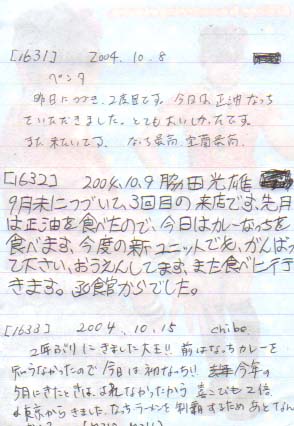 [1631] 2004.10.8
ペンタ
昨日につづき、2度目です。今日は正油なっち
でいただきました。とても大いしかったです。
また来たいです。なっち最高、室蘭最高。
[1632] 2004.10.9 脇田光雄
9月末につづいて、3回目の来店です。先月
は正油を食べたので、今日はカレーなっちを
食べます。今度の新ユニットでも、がんばっ
て下さい。おうえんしてます。また食べに行
きます。函館からでした。
[1633] 2004.10.15 chibe
2年ぶりにきました大王!! 前はなっちカレーを
食べなかったので今日は初なっち!! 今年の
5月にきたときは、よれなかったから 喜こびも2倍
東京からきました。なっちラーメンを制覇するため あとなん